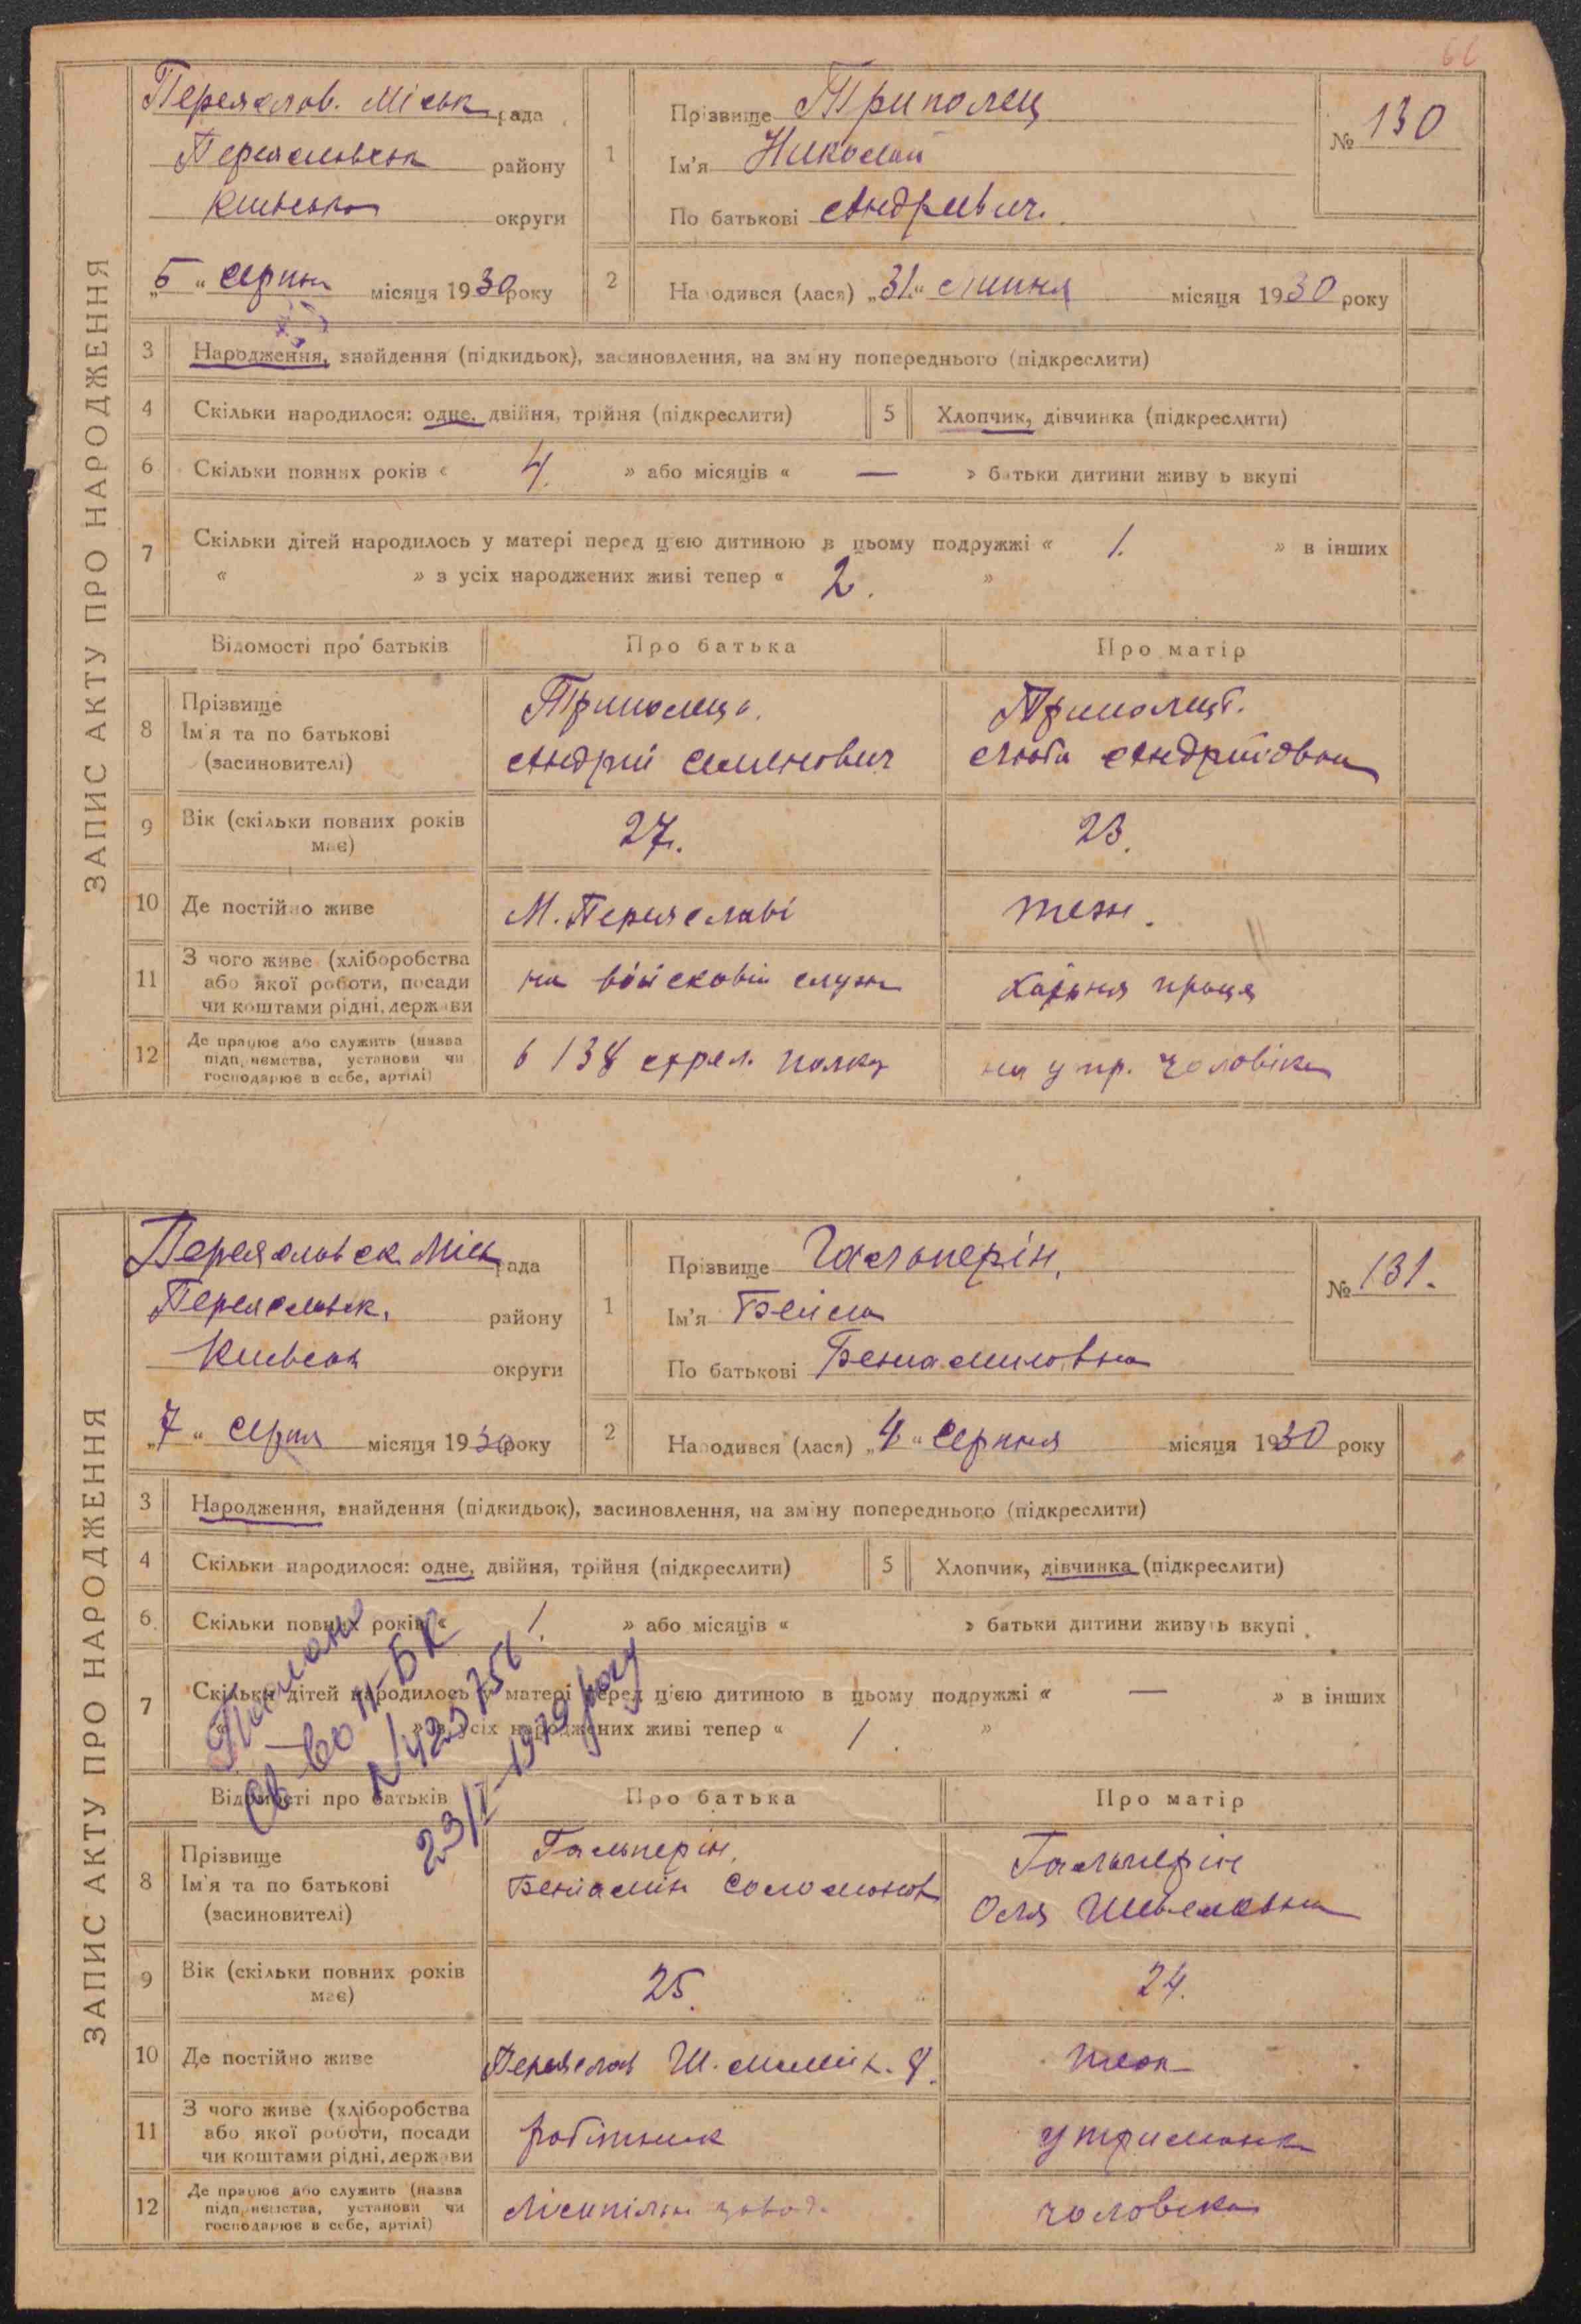 66
ЗАПИС АКТУ ПРО НАРОДЖЕННЯ
Переяслов. Міськ рада
Переяславськ району
Київська округи
„5“ серпня місяця 1930 року
1 Прізвище Триполец
Ім'я Николай
По батькові Андриевич.
№ 130
2 Народився (лася) „31“ Липня місяця 1930 року
3 Народження, знайдення (підкидьок), засиновлення, на зміну попереднього (підкреслити)
4 Скільки народилося: одне, двійня, трійня (підкреслити)
5 Хлопчик, дівчинка (підкреслити)
6 Скільки повних років « 4. » або місяців « — » батьки дитини живуть вкупі
7 Скільки дітей народилось у матері перед цією дитиною в цьому подружжі « 1. » в інших
« » з усіх народжених живі тепер « 2. »
Відомості про батьків Про батька Про матір
8 Прізвище
Ім'я та по батькові
(засиновителі)
Триполец
Андрій Семенович
Триполец
Люба Андрийовна
9 Вік (скільки повних років має)
27.
23.
10 Де постійно живе
М. Переяславі
теж.
11 З чого живе (хліборобства
або якої роботи, посади
чи коштами рідні, держави
на войсковій служ
хатня праця
12 Де працює або служить (назва
підприємства, установи чи
господарює в себе, артілі)
в 138 стрел. полку
на утр. чоловіка
ЗАПИС АКТУ ПРО НАРОДЖЕННЯ
Переяславск. Міск рада
Переяславск. району
Київськ округи
„7“ серпня місяця 1930 року
1 Прізвище Гальперін.
Ім'я Бейла
По батькові Бениаминовна
№ 131.
2 Народився (лася) „4“ Серпня місяця 1930 року
3 Народження, знайдення (підкидьок), засиновлення, на зміну попереднього (підкреслити)
4 Скільки народилося: одне, двійня, трійня (підкреслити)
5 Хлопчик, дівчинка (підкреслити)
6 Скільки повних років « 1. » або місяців « » батьки дитини живуть вкупі
7 Скільки дітей народилось у матері перед цією дитиною в цьому подружжі « — » в інших
« » з усіх народжених живі тепер « 1. »
Св-во
23/I-1979 року
Відомості про батьків Про батька Про матір
8 Прізвище
Ім'я та по батькові
(засиновителі)
Гальперін.
Беніамін Соломонов
Гальперін
Оля
9 Вік (скільки повних років має)
25.
24.
10 Де постійно живе
Переяслав Ш. 8.
теж
11 З чого живе (хліборобства
або якої роботи, посади
чи коштами рідні, держави
робітник
утриманн
12 Де працює або служить (назва
підприємства, установи чи
господарює в себе, артілі)
Лісопільн завод.
чоловіка